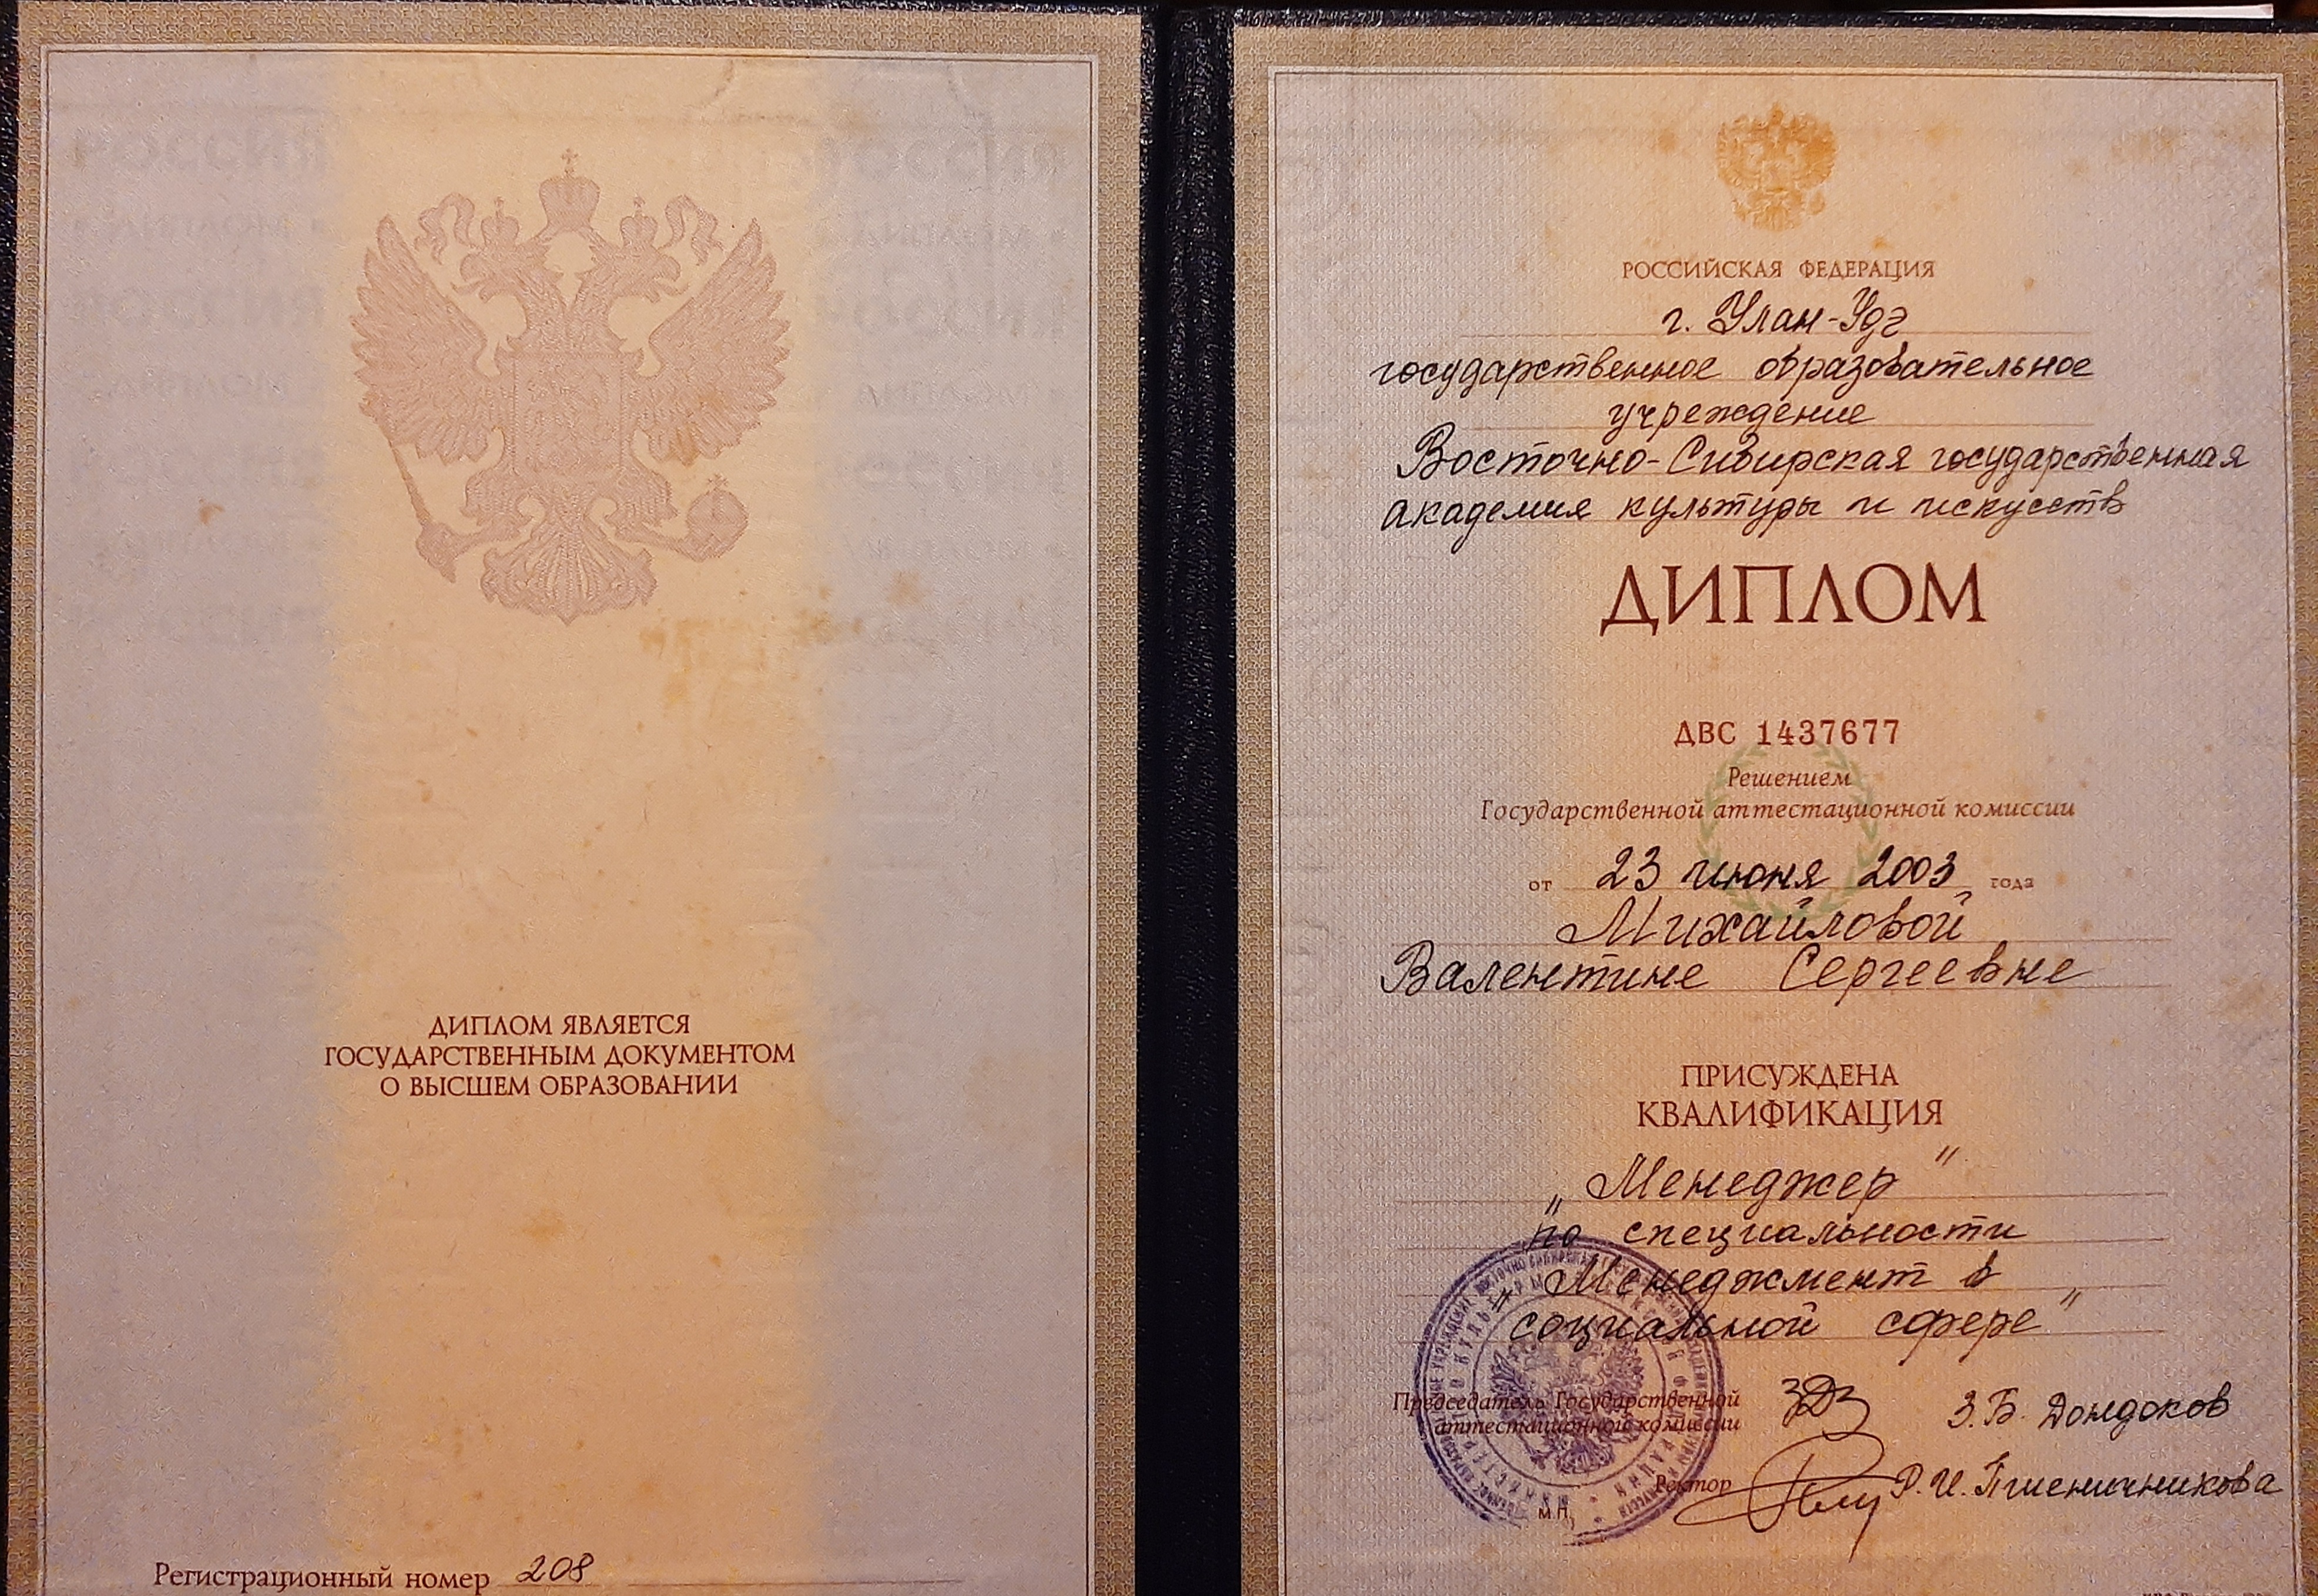 ДИПЛОМ ЯВЛЯЕТСЯ
ГОСУДАРСТВЕННЫМ ДОКУМЕНТОМ
О ВЫСШЕМ ОБРАЗОВАНИИ
Регистрационный номер 208
РОССИЙСКАЯ ФЕДЕРАЦИЯ
г. Улан-Удэ
государственное образовательное
учреждение
Восточно-Сибирская государственная
академия культуры и искусств
ДИПЛОМ
ДВС 1437677
Решением
Государственной аттестационной комиссии
от 23 июня 2003 года
Михайловой
Валентине Сергеевне
ПРИСУЖДЕНА
КВАЛИФИКАЦИЯ
„Менеджер"
по специальности
„Менеджмент в
социальной сфере"
Председатель Государственной
аттестационной комиссии З.Б. Дондоков
Ректор Р.И. Пшеничникова
М.П.